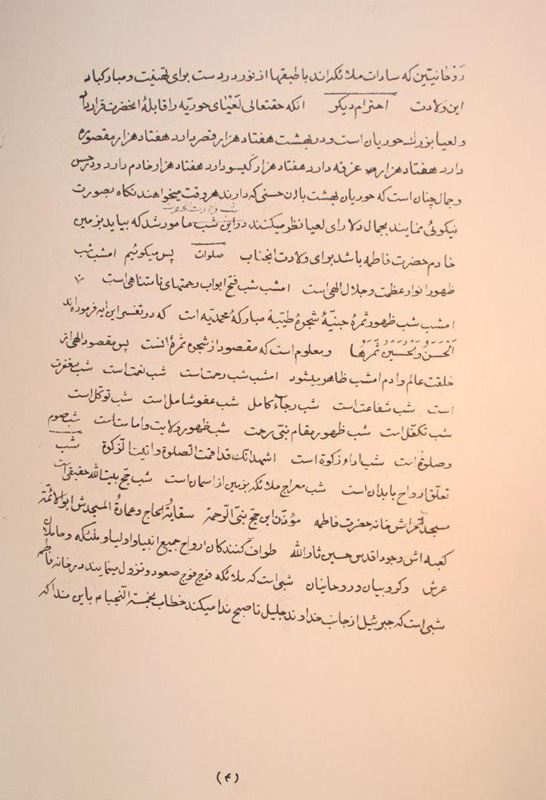 روحانیتین که سادات ملائکه اند با طبقها از نور در دست برای تهنیت و مبارکباد
این ولادت احترام دیگر آنکه حقتعالی لعیای حوریه را قابلهٔ آنحضرت قرار داد
و لعیا بزرك حوریان است و در بهشت هفتاد هزار قصر دارد هفتاد هزار مقصوره
دارد هفتاد هزار غرفه دارد هفتاد هزار گیسو دارد هفتاد هزار خادم دارد و در حسن
و جمال چنان است که حوریان بهشت با آن حسنی که دارند هر وقت میخواهند نگاه بصورت
شب ولادت
نیکوئی نمایند بجمال دلارای لعیا نظر میکنند در این شب مامور شد که بیاید بزمین
خادم حضرت فاطمه باشد برای ولادت آنجناب صلوات پس میکوئیم امشب شب
ظهور انوار عظمت و جلال الهی است امشب شب فتح ابواب رحمتهای نامتناهی است
امشب شب ظهور ثمرهٔ جنیهٔ شجرهٔ طیبهٔ مبارکهٔ محمدیه است که در تفسیر این آیه فرموده اند
الحسن و الحسین ثمرها و معلوم است که مقصود از شجره ثمرهٔ آنست پس مقصود الهی از
خلقت عالم و ادم امشب ظاهر میشود امشب شب رحمت است شب نعمت است شب مغفرت
است شب شفاعت است شب رجاء کامل شب عفو شامل است شب توکل است
شب تکفل است شب ظهور مقام نبی رحمت شب ظهور ولایت و امامت است شب صوم
و صلوة است شب اداء زکوة است اشهد انك قد اقمت الصلوة و اتیت الزکوة شب
تعلق ارواح بابدان است شب معراج ملائکه بزمین از اسمان است شب حج بیت الله حقیقی است
مسجد الحرامش خانه حضرت فاطمه مؤذن این حج نبی الرحمة سقایة الحاج و عمارة المسجدش ابو الائمة
کعبه اش وجود اقدس حسین ثار الله طواف کنندکان ارواح جمیع انبیا و اولیا و ملئکه و حاملان
عرش و کروبیان و روحانیان شبی است که ملائکه فوج فوج صعود و نزول مینمایند در خانه فاطمه
شبی است که جبرئیل از جانب خداوند جلیل تا صبح ندا میکند خطاب بخمسة النجباء باین ندا که
(۴)